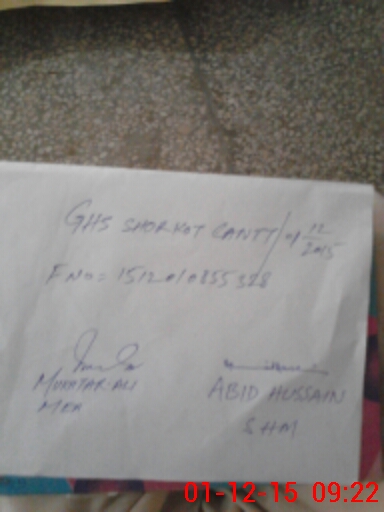 GHS SHORKOT CANTT / of 12/2015
F NO = 1512010855328
MUKHTAR-ALI
MEA
ABID HUSSAIN
SHM
01-12-15 09:22